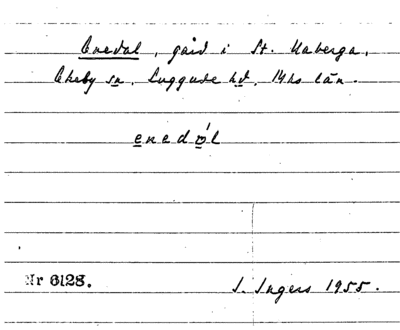 Enedal, gård i St.
Ekeby sn, Luggude hd, Mhs län.
enedól
Nr 6128.
I. Ingers 1955.